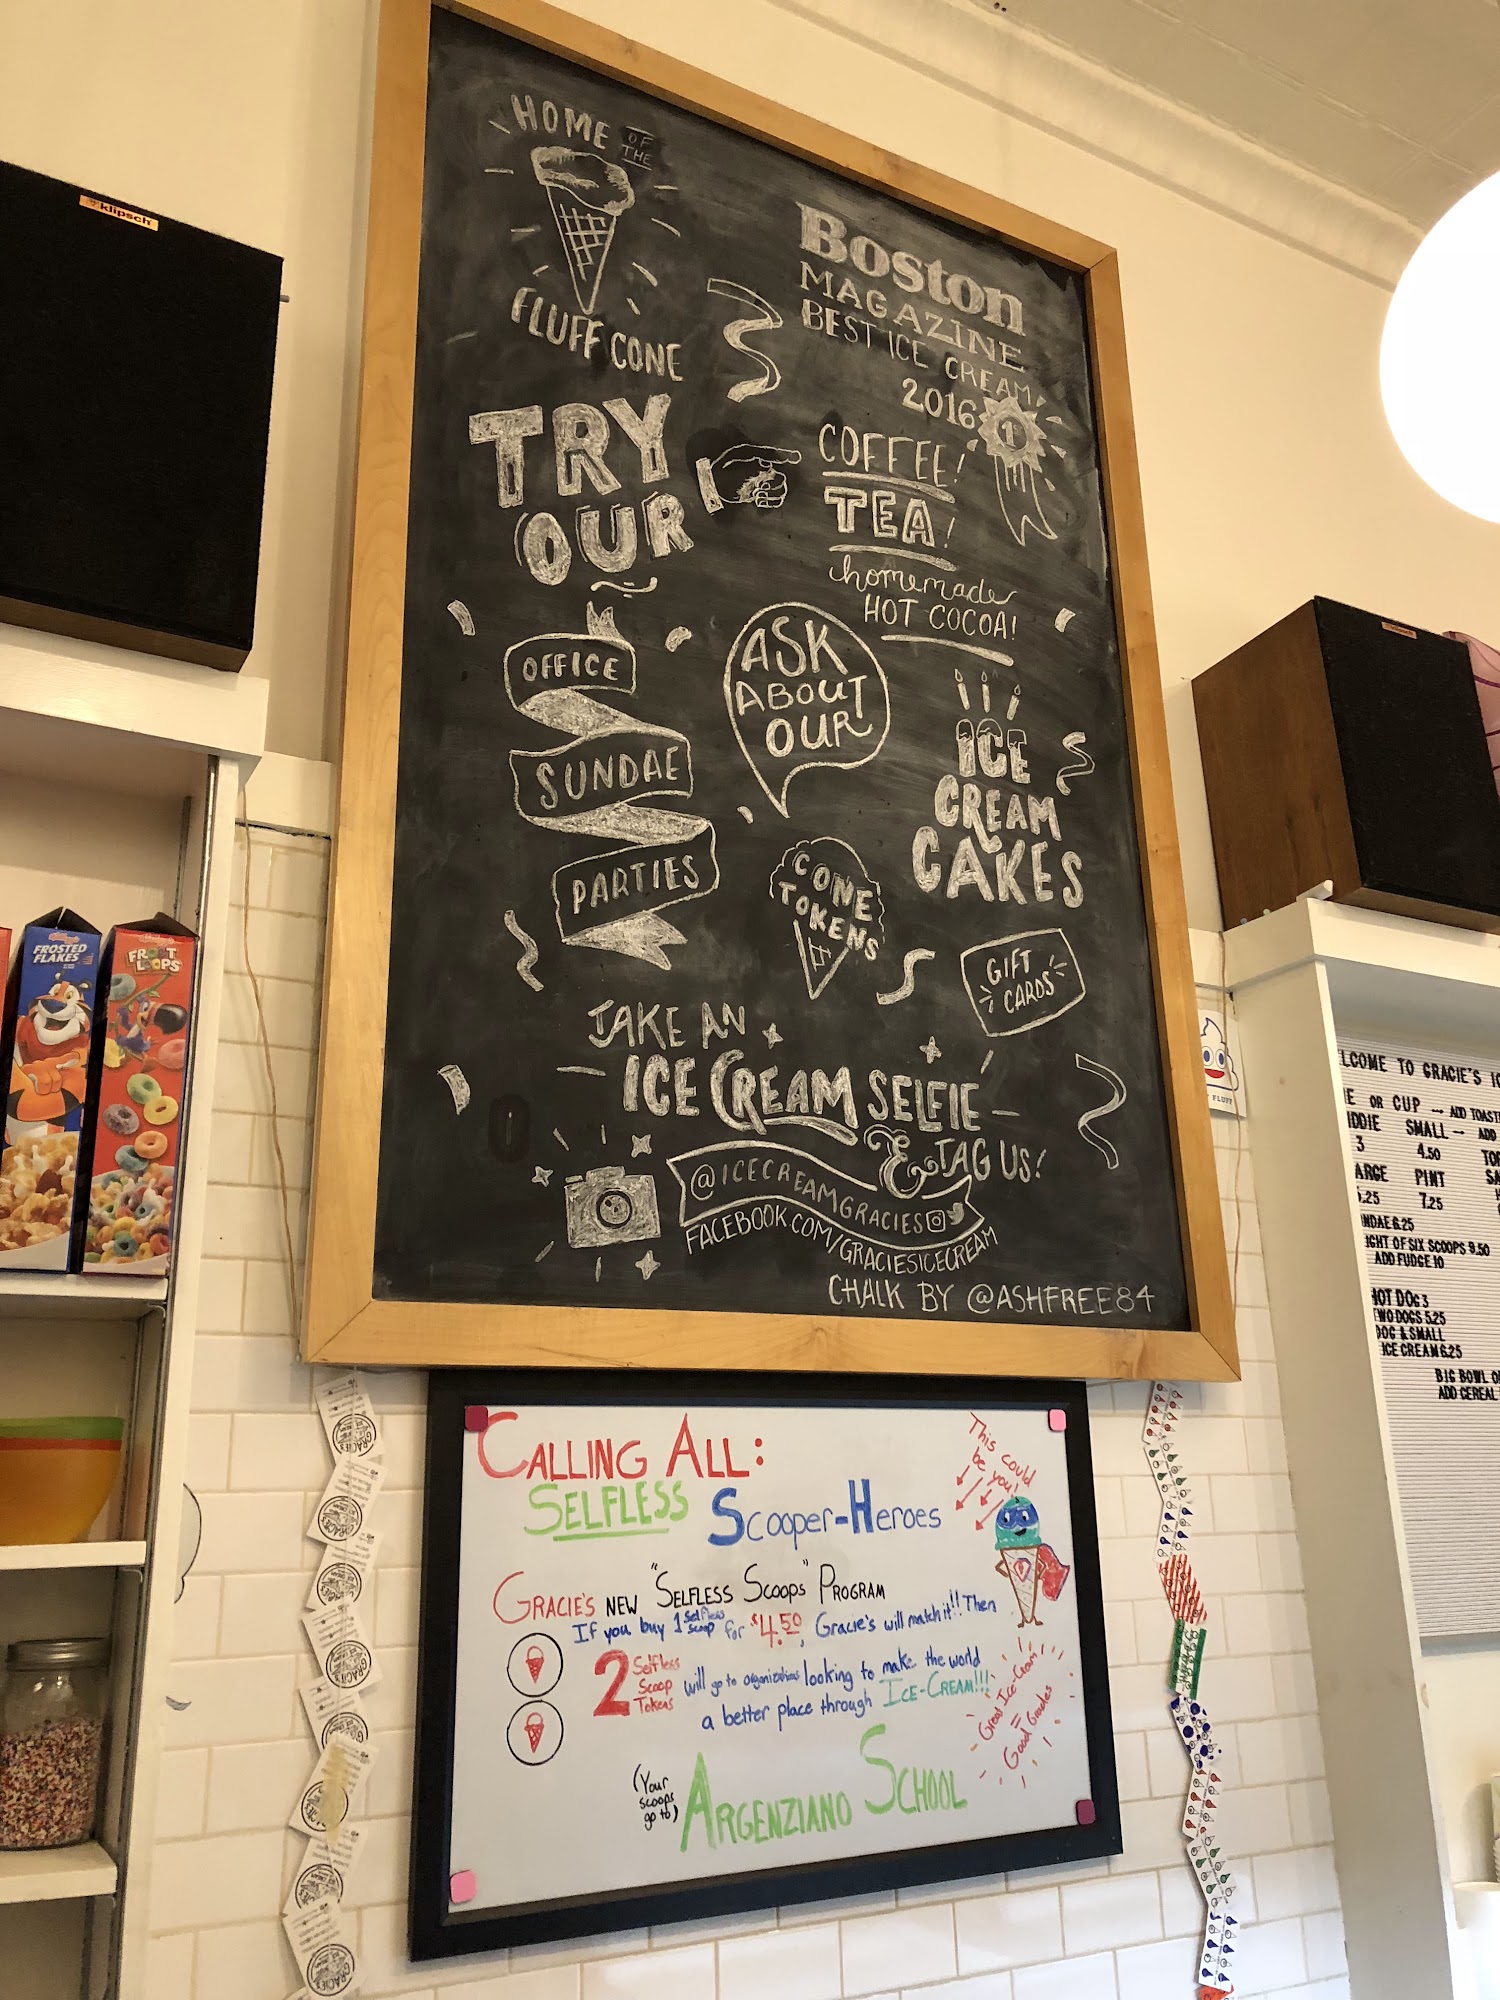 HOME OF THE
FLUFF CONE
BOSTON
MAGAZINE
BEST ICE CREAM
2016
1
TRY
OUR
COFFEE!
TEA!
homemade
HOT COCOA!
OFFICE
SUNDAE
PARTIES
ASK
ABOUT
OUR
ICE
CREAM
CAKES
CONE
TOKENS
GIFT
CARDS
TAKE AN
ICE CREAM SELFIE
& TAG US!
@ICECREAMGRACIES
FACEBOOK.COM/GRACIESICECREAM
CHALK BY @ASHFREE84
klipsch
klipsch
FROSTED
FLAKES
FROOT
LOOPS
CALLING ALL:
SELFLESS SCOOPER-HEROES
This could
be you!
GRACIE'S NEW "SELFLESS SCOOPS" PROGRAM
If you buy 1 selfless scoop for $4.50, Gracie's will match it!! Then
2 Selfless Scoop Tokens will go to organizations looking to make the world
a better place through ICE-CREAM!!!
Great Ice-Cream
=
Good Grades
(Your
scoops
go to)
ARGENZIANO SCHOOL
GRACIE'S
FLUFF
LCOME TO GRACIE'S IC
E OR CUP -- ADD TOAST
IDDIE SMALL -- ADD
3 4.50 TOP
ARGE PINT SA
.25 7.25
NDAE 6.25
IGHT OF SIX SCOOPS 9.50
ADD FUDGE 10
HOT DOG 3
TWO DOGS 5.25
DOG & SMALL
ICE CREAM 6.25
BIG BOWL O
ADD CEREAL